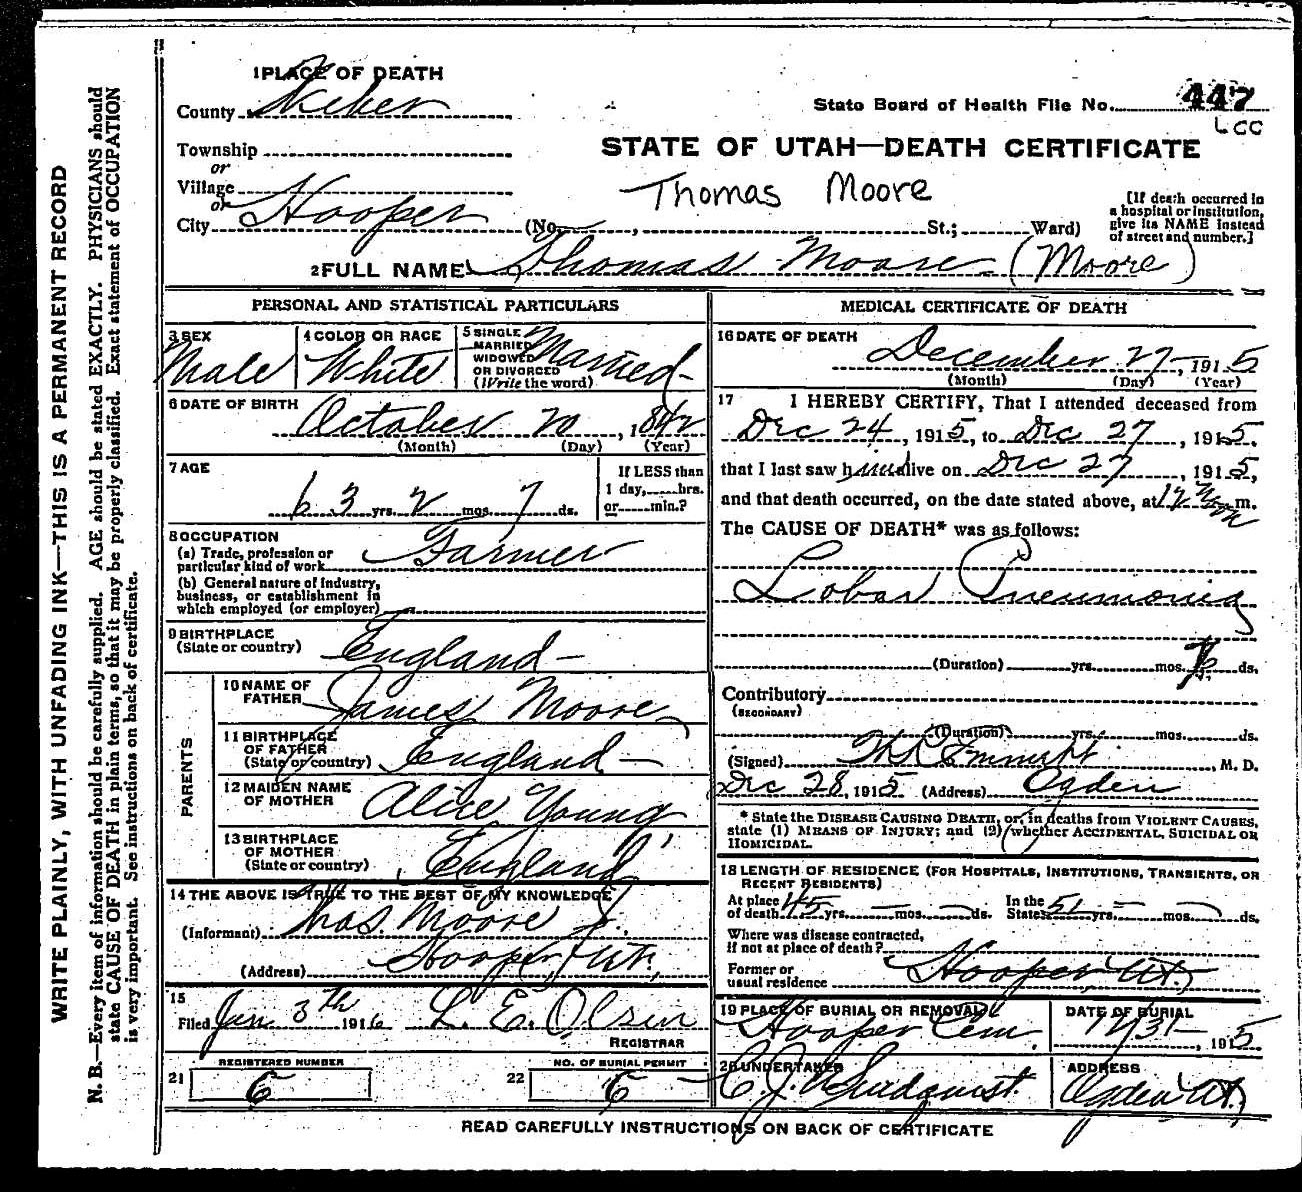 1 PLACE OF DEATH
County Weber
State Board of Health File No. 447
LCC
Township
or
Village
or
City Hooper
STATE OF UTAH—DEATH CERTIFICATE
Thomas Moore
(No. , St.; Ward)
[If death occurred in
a hospital or institution,
give its NAME instead
of street and number.]
2 FULL NAME Thomas Moore (Moore)
PERSONAL AND STATISTICAL PARTICULARS
3 SEX
Male
4 COLOR OR RACE
White
5 SINGLE
MARRIED
WIDOWED
OR DIVORCED
(Write the word)
Married
6 DATE OF BIRTH
October 20, 1842
(Month) (Day) (Year)
7 AGE
63 yrs. 2 mos. 7 ds.
If LESS than
1 day, hrs.
or min.?
8 OCCUPATION
(a) Trade, profession or
particular kind of work Farmer
(b) General nature of industry,
business, or establishment in
which employed (or employer)
9 BIRTHPLACE
(State or country) England
PARENTS
10 NAME OF
FATHER James Moore
11 BIRTHPLACE
OF FATHER
(State or country) England
12 MAIDEN NAME
OF MOTHER Alice Young
13 BIRTHPLACE
OF MOTHER
(State or country) England
14 THE ABOVE IS TRUE TO THE BEST OF MY KNOWLEDGE
(Informant) Thos. Moore Jr.
(Address) Hooper, Ut.
15
Filed Jan 3th 1916 L. E. Olsen
REGISTRAR
21 REGISTERED NUMBER
6
22 NO. OF BURIAL PERMIT
6
MEDICAL CERTIFICATE OF DEATH
16 DATE OF DEATH
December 27, 1915
(Month) (Day) (Year)
17 I HEREBY CERTIFY, That I attended deceased from
Dec 24, 1915, to Dec 27, 1915,
that I last saw him alive on Dec 27, 1915,
and that death occurred, on the date stated above, at 12 Noon m.
The CAUSE OF DEATH* was as follows:
Lobar Pneumonia
(Duration) yrs. mos. ds.
Contributory
(SECONDARY)
(Duration) yrs. mos. ds.
(Signed) Emmett, M. D.
Dec 28, 1915 (Address) Ogden
* State the DISEASE CAUSING DEATH, or, in deaths from VIOLENT CAUSES,
state (1) MEANS OF INJURY; and (2) whether ACCIDENTAL, SUICIDAL OR
HOMICIDAL.
18 LENGTH OF RESIDENCE (FOR HOSPITALS, INSTITUTIONS, TRANSIENTS, OR
RECENT RESIDENTS)
At place
of death 45 yrs. — mos. — ds.
In the
State 51 yrs. — mos. — ds.
Where was disease contracted,
if not at place of death?
Former or
usual residence Hooper, Ut.
19 PLACE OF BURIAL OR REMOVAL
Hooper Cem.
DATE OF BURIAL
12/31, 1915
20 UNDERTAKER
C. J. A. Lindquist.
ADDRESS
Ogden Ut.
READ CAREFULLY INSTRUCTIONS ON BACK OF CERTIFICATE
WRITE PLAINLY, WITH UNFADING INK—THIS IS A PERMANENT RECORD
N. B.—Every item of information should be carefully supplied. AGE should be stated EXACTLY. PHYSICIANS should
state CAUSE OF DEATH in plain terms, so that it may be properly classified. Exact statement of OCCUPATION
is very important. See instructions on back of certificate.